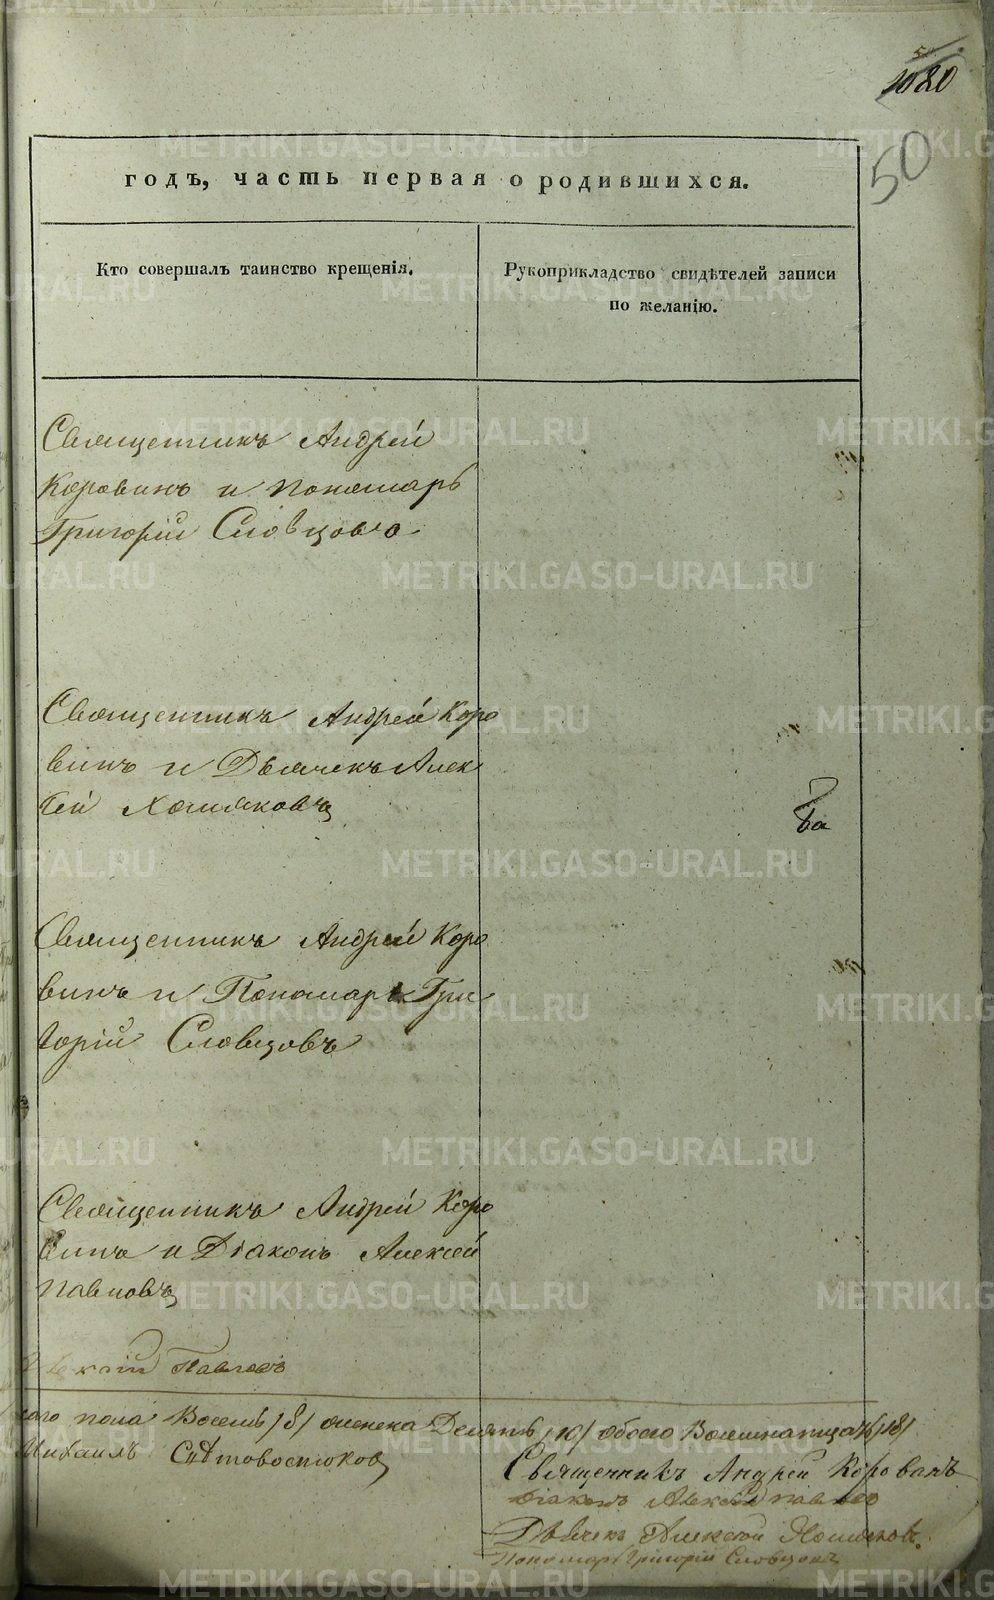 1080
50
годъ, часть первая о родившихся.
Кто совершалъ таинство крещенія.
Рукоприкладство свидѣтелей записи
по желанію.
Священникъ Андрей
Коровинъ и пономарь
Григорій Словцовъ
Священникъ Андрей Коро
винъ и Дьячекъ Алек
сѣй Хомяковъ
Священникъ Андрей Коро
винъ и Пономарь Гри
горій Словцовъ
Священникъ Андрей Коро
винъ и Діаконъ Алексѣй
Павловъ
Павловъ
пола Восемь /8/ женска Десять /10/ обоего Восемнатцать /18/
Михаилъ
Священникъ Андрей Коровинъ
Діаконъ Алексей Павловъ
Дьячекъ Алексѣй Хомяковъ.
Пономарь Григорій Словцовъ
METRIKI.GASO-URAL.RU